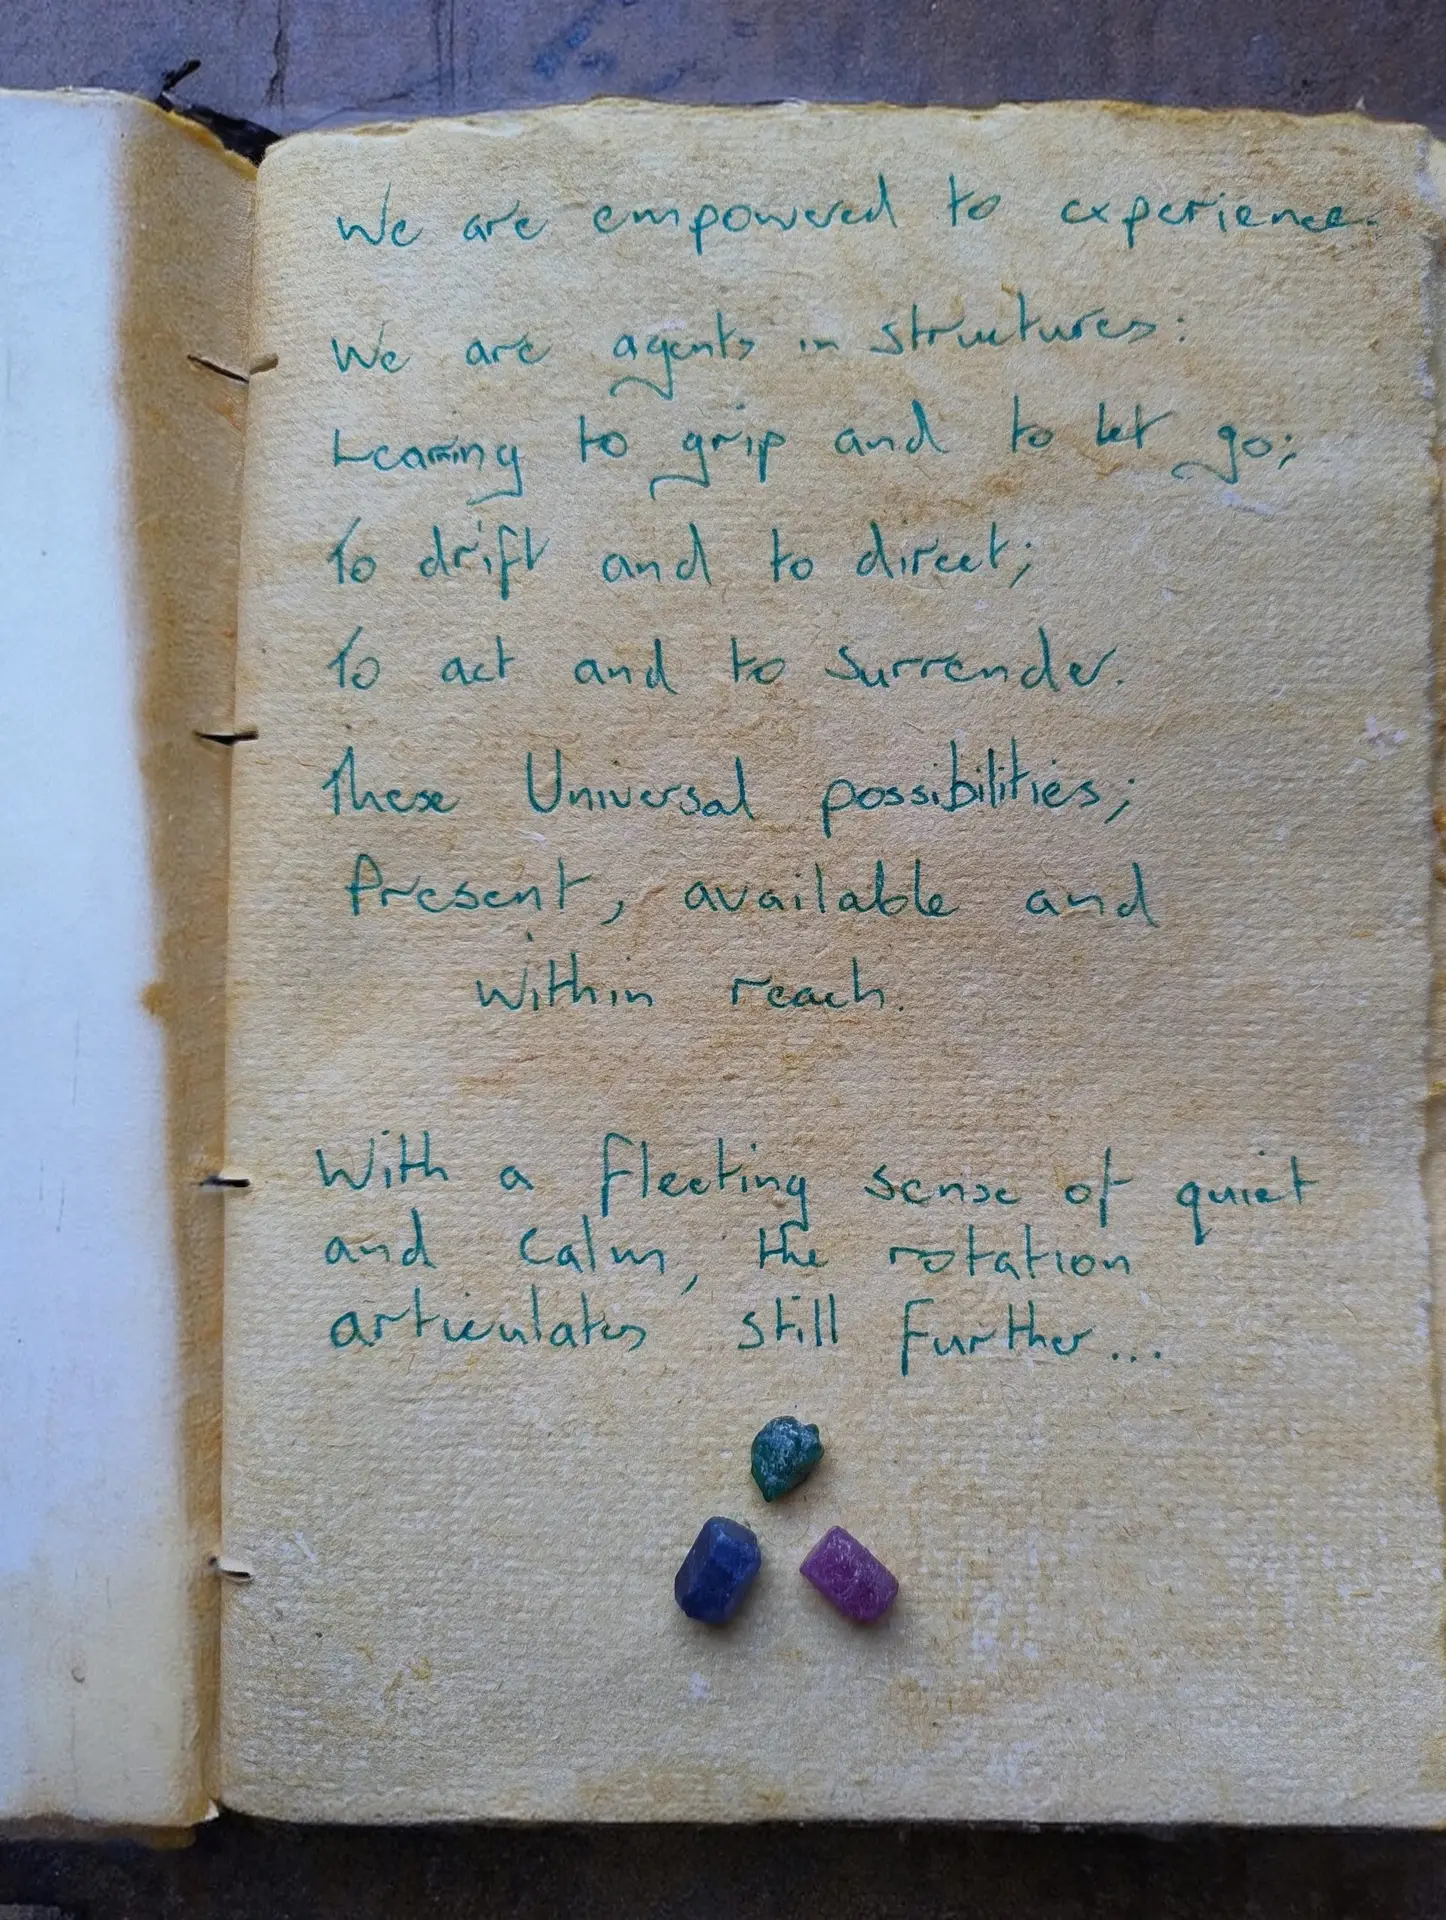 We are empowered to experience.
We are agents in structures:
Learning to grip and to let go;
To drift and to direct;
To act and to surrender.
These Universal possibilities;
Present, available and
within reach.
With a fleeting sense of quiet
and calm, the rotation
articulates still further...